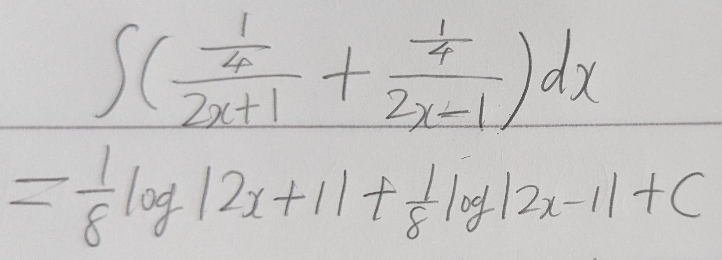 ∫(\frac{\frac{1}{4}}{2x+1} + \frac{\frac{1}{4}}{2x-1})dx
= \frac{1}{8} log|2x+1| + \frac{1}{8} log|2x-1| + C